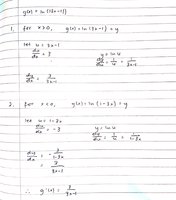 g(x) = ln(|3x-1|)
1. for x>0, g(x) = ln(3x-1) = y
let u = 3x-1
du/dx = 3
y = ln u
dy/du = 1/u = 1/3x-1
dy/dx = 3/3x-1
2. for x<0, g(x) = ln(1-3x) = y
let u = 1-3x
du/dx = -3
y = ln u
dy/du = 1/u = 1/1-3x
dy/dx = 3/1-3x
= 3/3x-1
∴ g'(x) = 3/3x-1